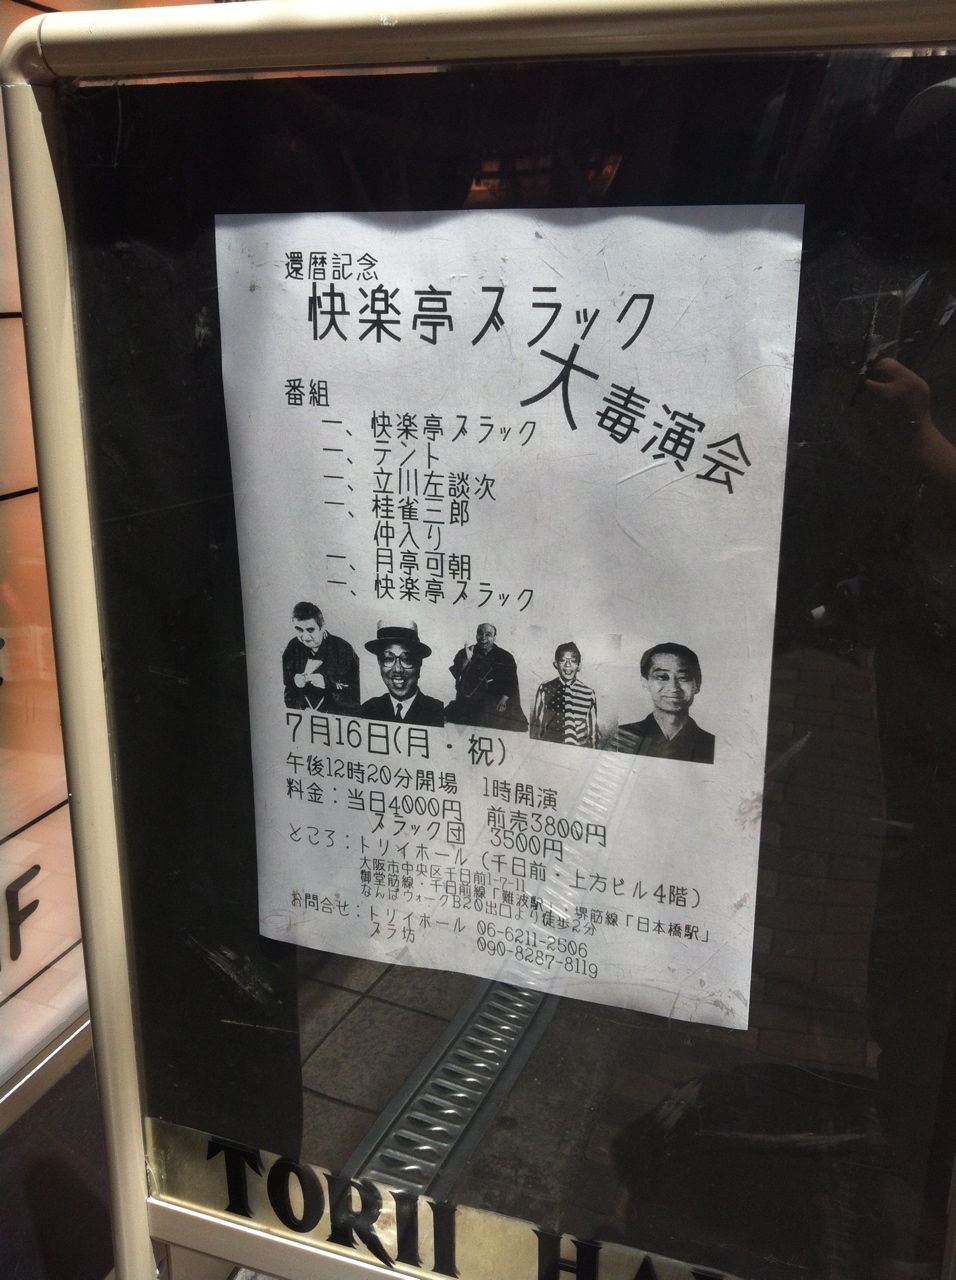 還暦記念
快楽亭ブラック
大毒演会
番組
一、快楽亭ブラック
一、テント
一、立川左談次
一、桂雀三郎
仲入り
一、月亭可朝
一、快楽亭ブラック
7月16日(月・祝)
午後12時20分開場 1時開演
料金：当日4000円 前売3800円
ブラック団 3500円
ところ：トリイホール (千日前・上方ビル4階)
大阪市中央区千日前1-7-11
御堂筋線・千日前線「難波駅」、堺筋線「日本橋駅」
なんばウォークB20出口より徒歩2分
お問合せ：トリイホール 06-6211-2506
ブラ坊 090-8287-8119
TORII